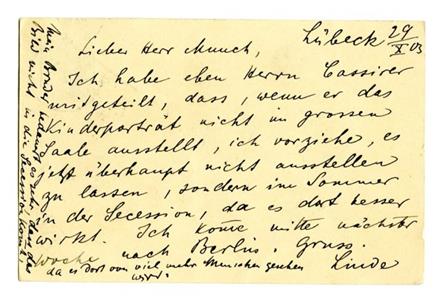 Lübeck 29/X 03
Lieber Herr Munch,
Ich habe eben Herrn Cassirer
mitgeteilt, dass, wenn er das
Kinderporträt nicht im grossen
Saale ausstellt, ich vorziehe, es
jetzt überhaupt nicht ausstellen
zu lassen, sondern im Sommer
in der Secession, da es dort besser
wirkt. Ich kome mitte nächster
woche nach Berlin. Gruss.
Linde
da es dort von viel mehr Menschen gesehen
wird.
Mein Bruder sehr, dass das
Bild nicht in die Secession komt,